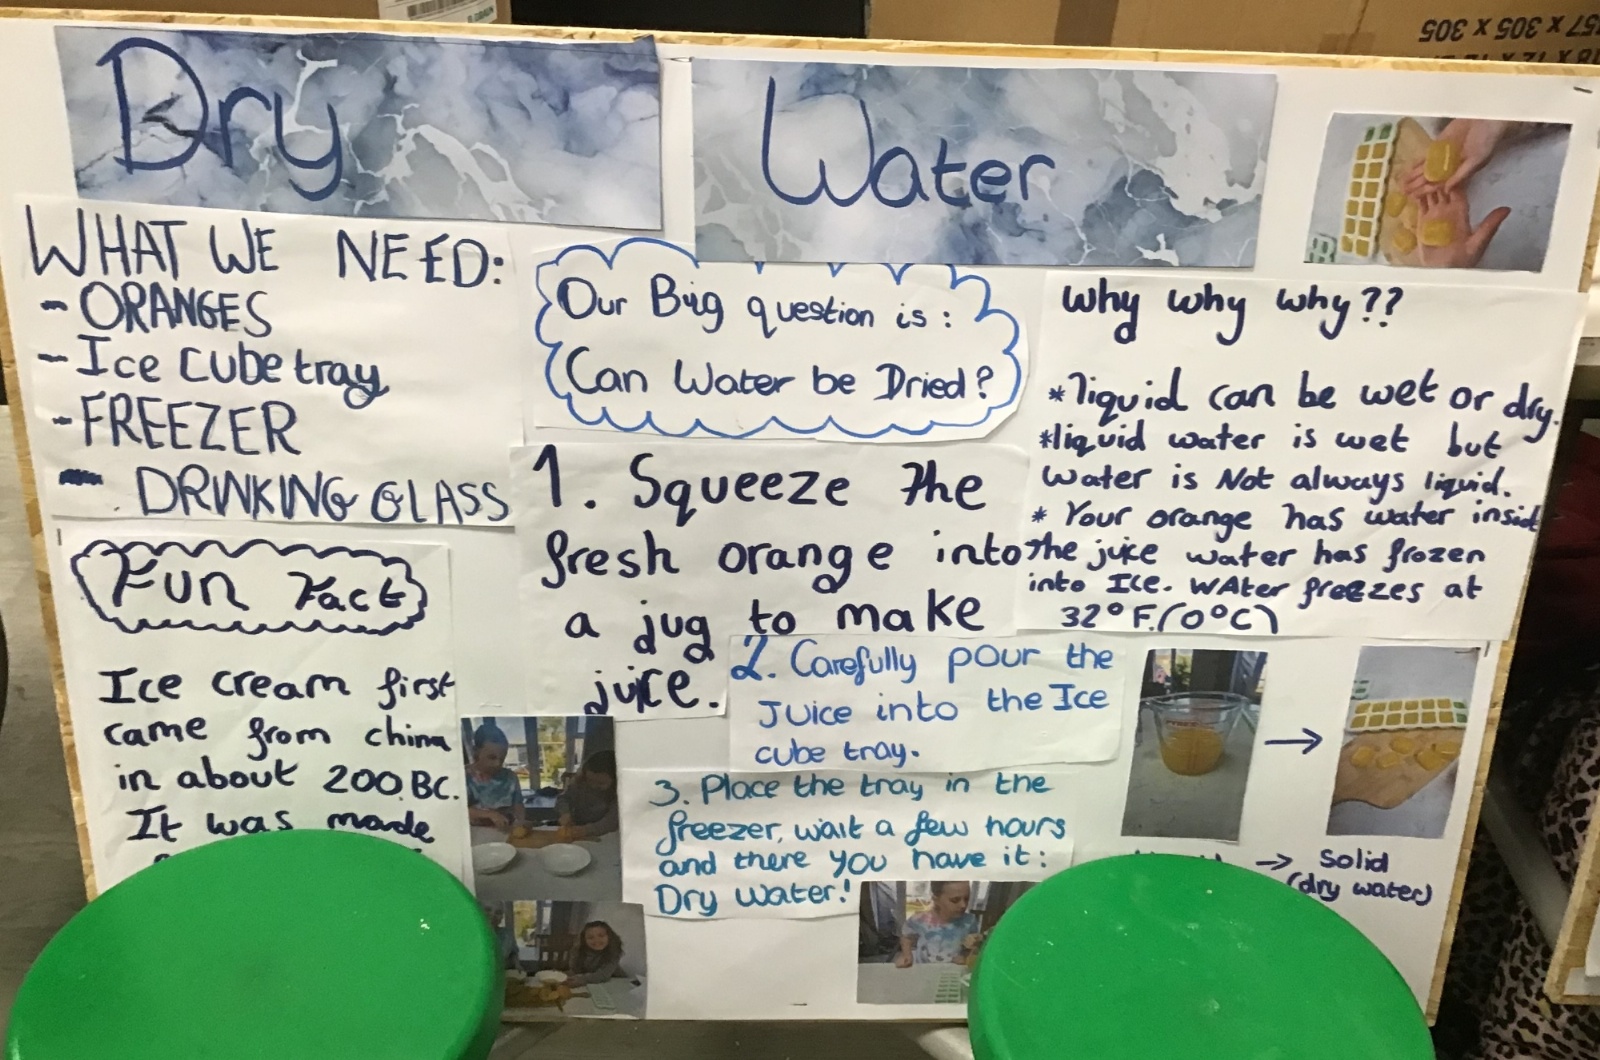 Dry
Water
WHAT WE NEED:
- ORANGES
- Ice cube tray
- FREEZER
- DRINKING GLASS
Our Big question is:
Can Water be Dried?
Why why why??
*liquid can be wet or dry.
*liquid water is wet but
Water is Not always liquid.
* Your orange has water inside
The juice water has frozen
into Ice. WAter freezes at
32°F.(0°C)
1. Squeeze The
fresh orange into
a jug to make
juice.
2. Carefully pour the
Juice into the Ice
cube tray.
3. Place the tray in the
freezer, wait a few hours
and there you have it:
Dry Water!
Fun Fact
Ice cream first
came from china
in about 200.BC.
It was made
→
→ Solid
(dry water)
PYREX
57 x 305 x 305